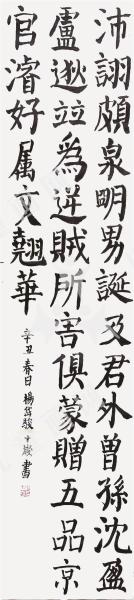 沛詡頗泉明男誕及君外曾孫沈盈
盧逖竝為逆賊所害俱蒙贈五品京
官濬好属文翹華
辛丑春日楊駿十歲書